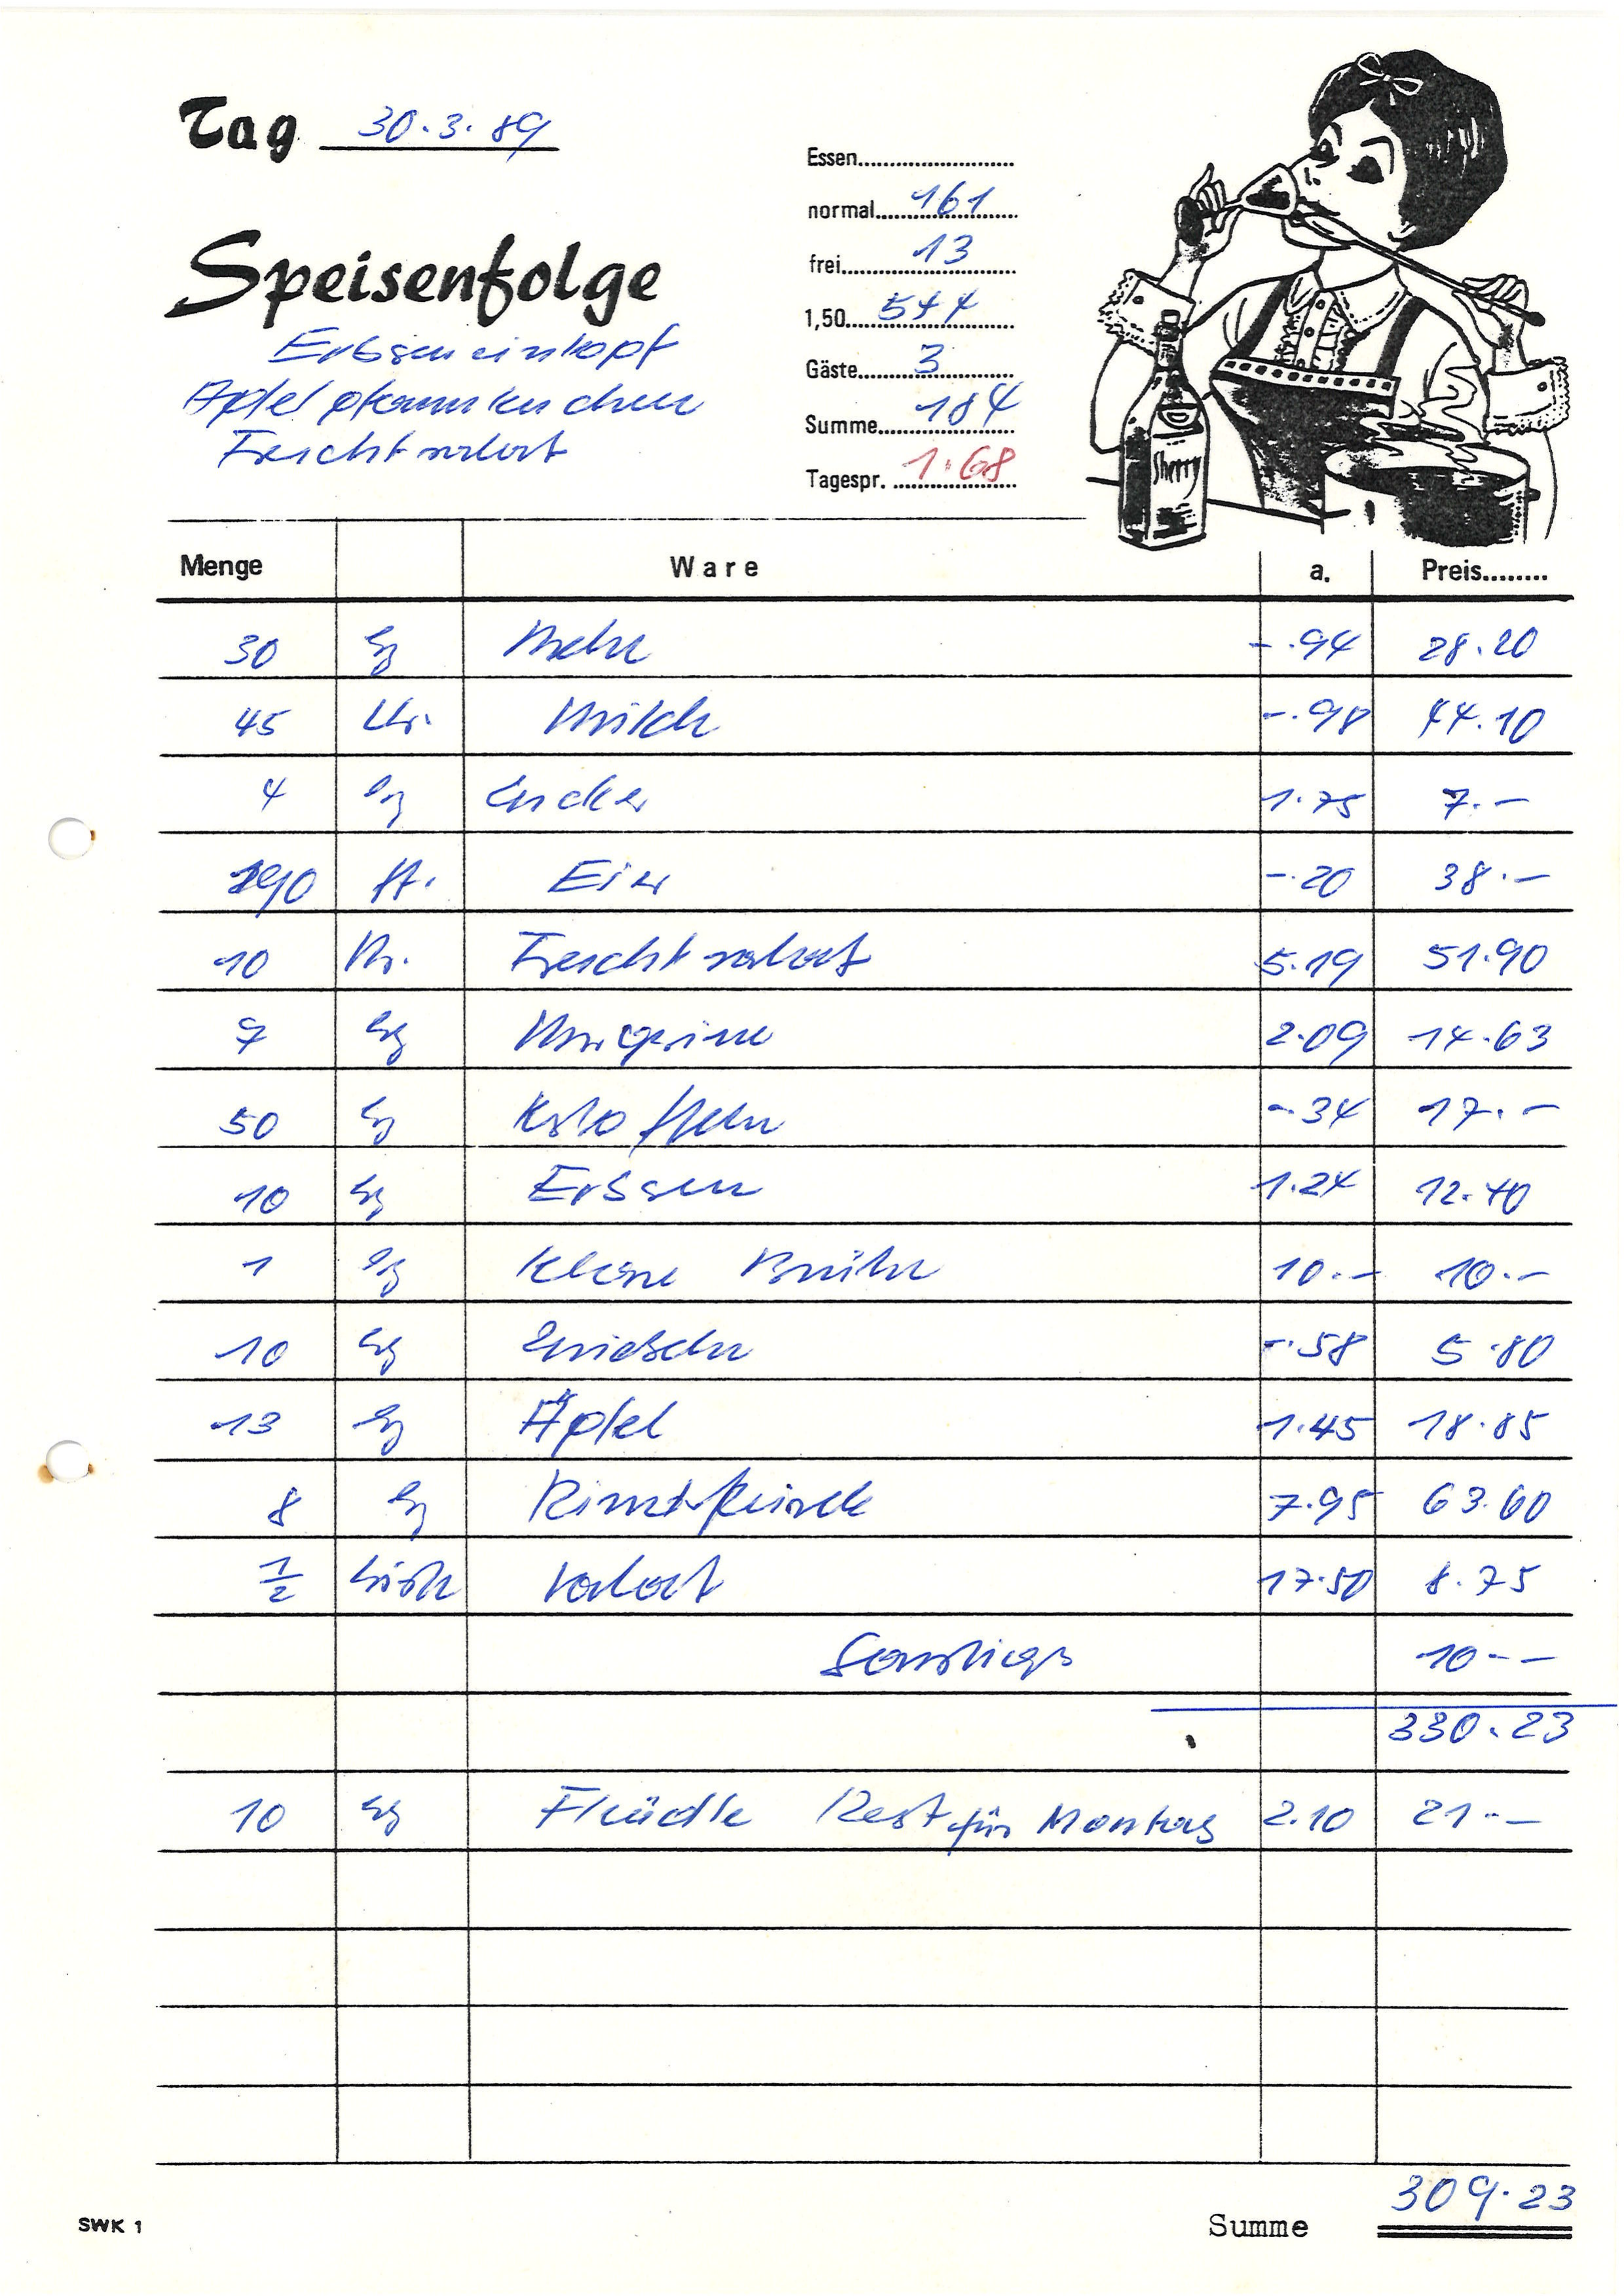 Tag 30.3.89
Essen
normal 161
frei 13
1,50
Gäste 3
Summe 184
Tagespr. 1.68
Speisenfolge
Erbseneintopf
Apfelpfannkuchen
Frischkost
Sherry
Menge Ware a. Preis
30 kg Mehl -.94 28.20
45 Ltr. Milch -.98 44.10
4 kg Zucker 1.75 7.-
190 St. Eier -.20 38.-
10 5.19 51.90
7 kg Margarine 2.09 14.63
50 kg Kartoffeln -.34 17.-
10 kg Erbsen 1.24 12.40
1 kg Klare Brühe 10.- 10.-
10 kg Zwiebeln -.58 5.80
13 kg Äpfel 1.45 18.85
8 kg Rindfleisch 7.95 63.60
1/2 Kiste Salat 17.50 8.75
Sonstiges 10.-
330.23
10 kg Flädle Rest für Montag 2.10 21.-
SWK 1
Summe 309.23